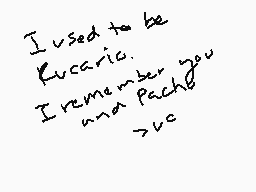 I used to be
Rucario.
I remember you
and Pacho
>vc